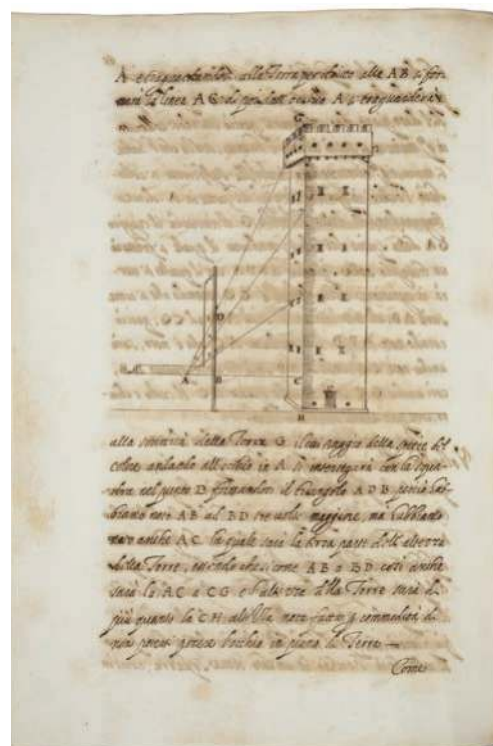 A e traguardando alla Terra per dritto alla AB si for
merà la linea AC di poi dall'occhio A si traguarderà
G
D
A B C
H
alla sommità della Torre G il cui raggio della specie del
colore andando all'occhio in A si intersegarà con la squa
dra nel punto D formandosi il triangolo ADB perciò hab-
biamo noto AB ed BD tre volte maggiore, ma habbiamo
noto anche AC la quale sarà la terza parte dell'altezza
della Torre, essendo che si come AB a BD così anche
sarà la AC a CG e l'altezza della Torre sarà di
più quanto la CH
non poter potere l'occhio in piano di Terra —
Come